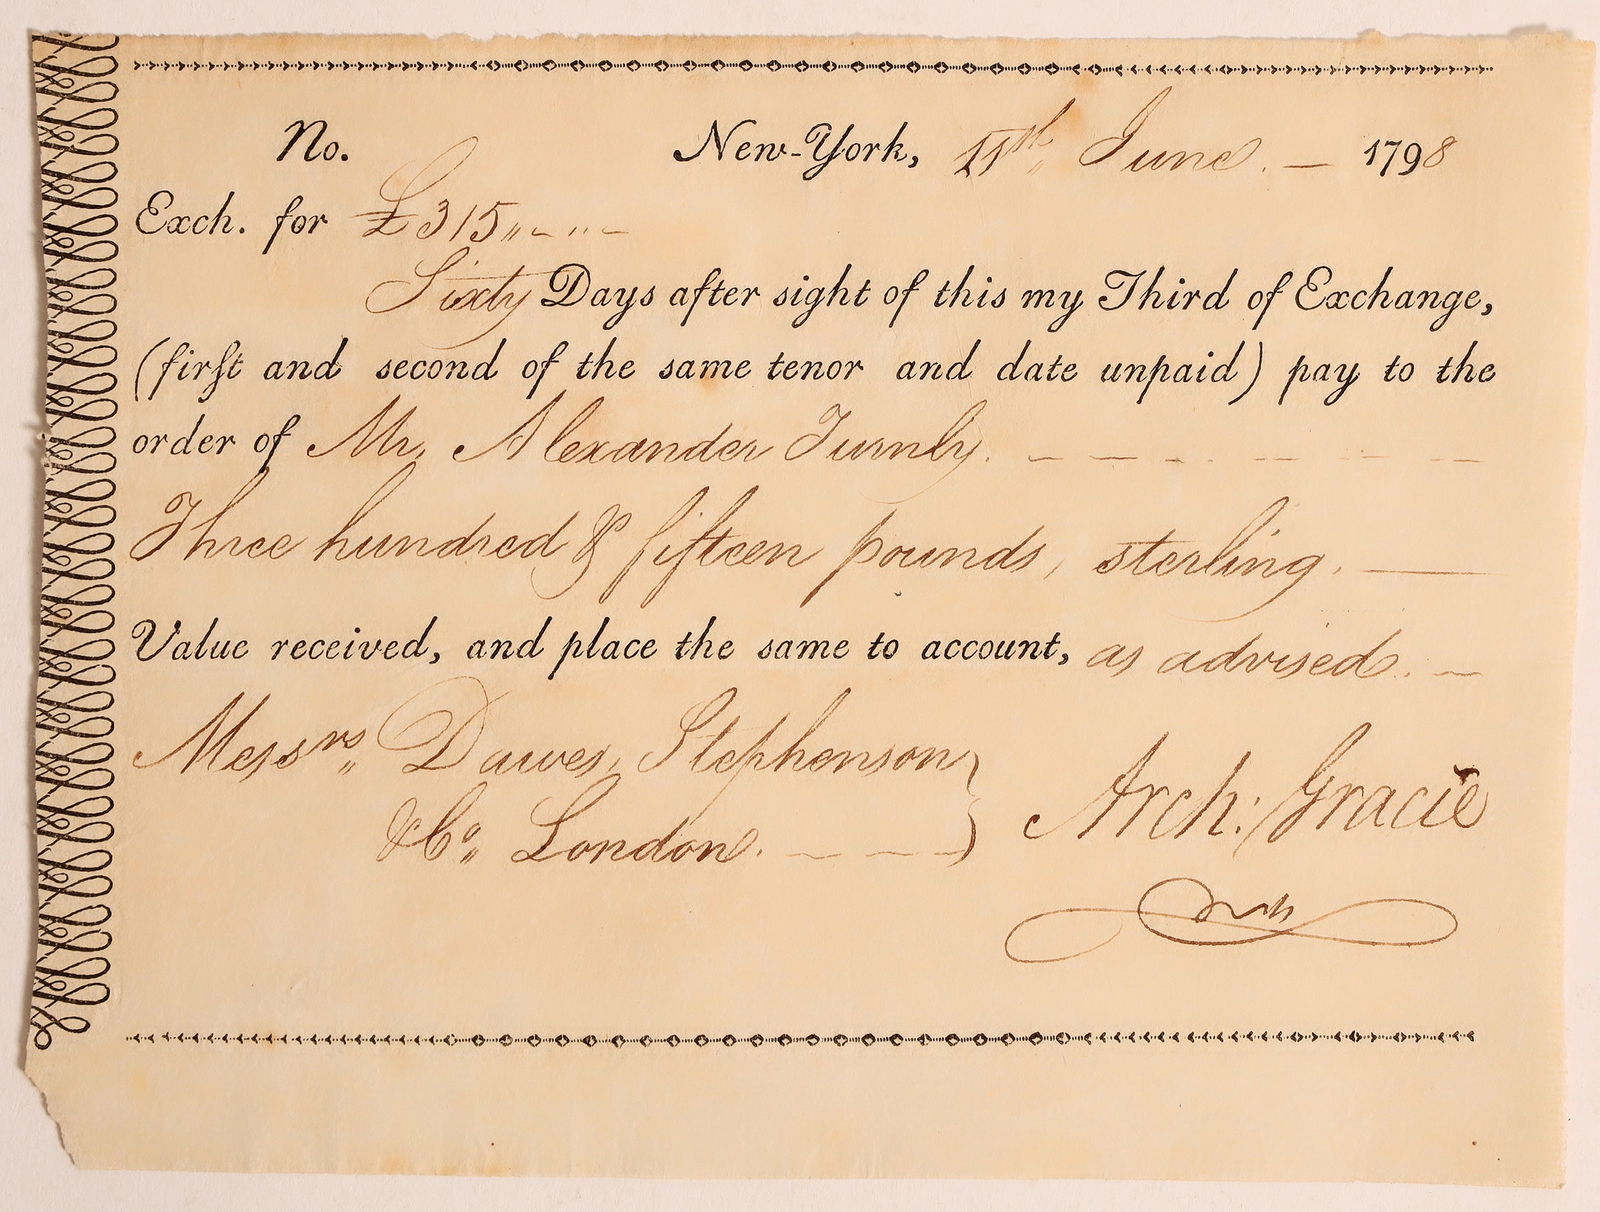 No. New-York, 11th June. — 1798
Exch. for £315 „ - „ -
Sixty Days after sight of this my Third of Exchange,
(firſt and second of the same tenor and date unpaid) pay to the
order of Mr. Alexander Turnly.
Three hundred & fifteen pounds, sterling. —
Value received, and place the same to account, as advised. —
Messrs. Dawes, Stephenson
& Co. London. Arch: Gracie